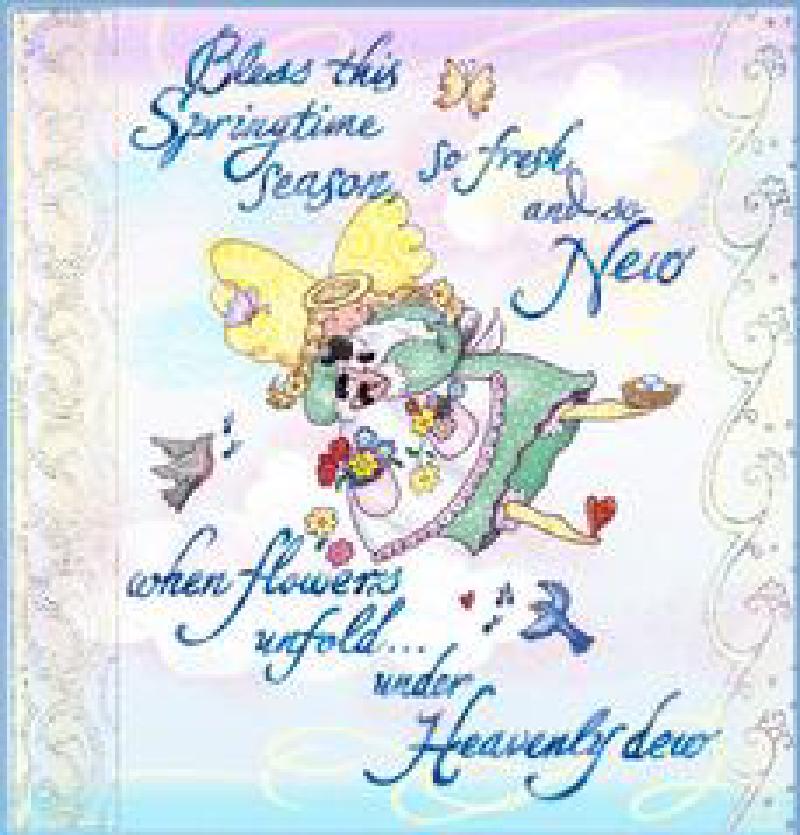 Bless this
Springtime
season,
so fresh,
and so
New
when flowers
unfold...
under
Heavenly dew